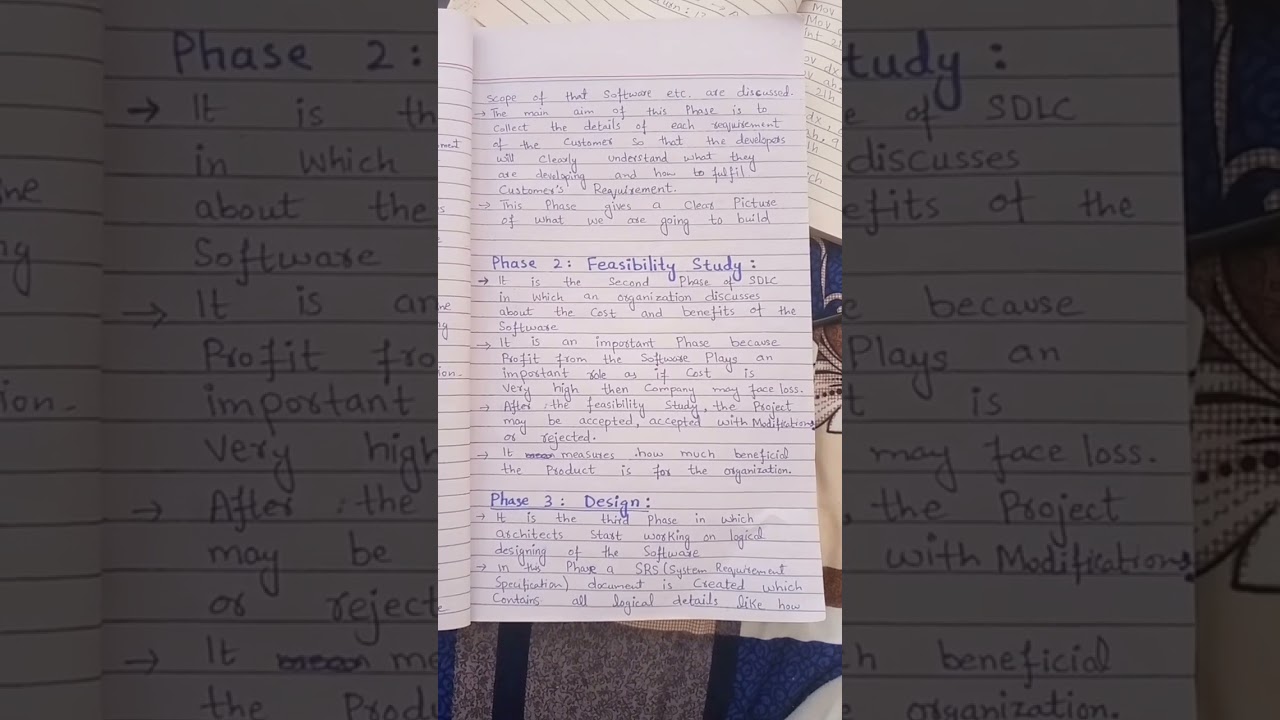 scope of that Software etc. are discussed.
→ The main aim of this Phase is to
collect the details of each requirement
of the Customer so that the developers
will Clearly understand what they
are developing and how to fulfil
Customer's Requirement.
→ This Phase gives a Clear Picture
of what we are going to build
Phase 2: Feasibility Study:
→ It is the Second Phase of SDLC
in which an organization discusses
about the Cost and benefits of the
Software
→ It is an important Phase because
Profit from the Software Plays an
important role as if Cost is
very high then Company may face loss.
→ After the feasibility Study, the Project
may be accepted, accepted with Modifications
or rejected.
→ It measures how much beneficial
the Product is for the organization.
Phase 3: Design:
→ It is the third Phase in which
architects start working on logical
designing of the Software
→ In this Phase a SRS (System Requirement
Specification) document is Created which
Contains all logical details like how